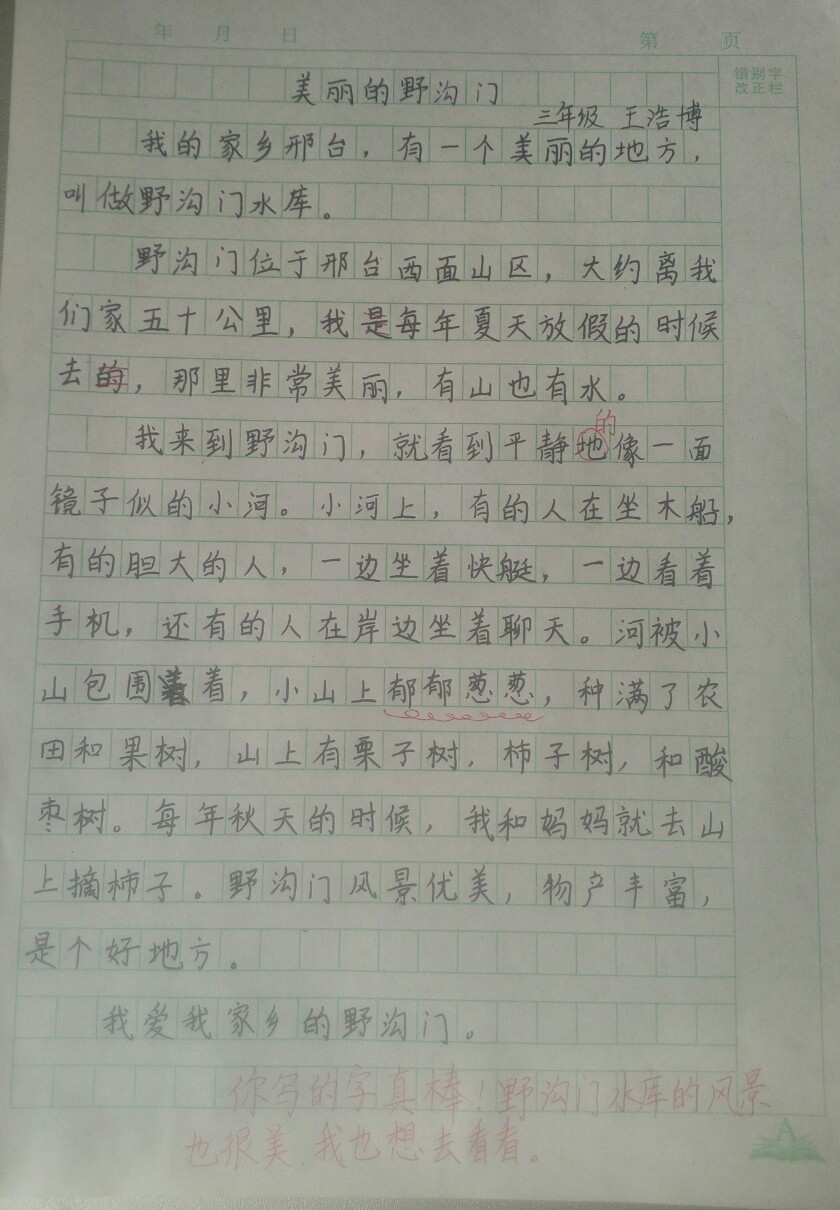 年 月 日 第 页
错别字
改正栏
美丽的野沟门
三年级 王浩博
我的家乡邢台，有一个美丽的地方，
叫做野沟门水库。
野沟门位于邢台西面山区，大约离我
们家五十公里，我是每年夏天放假的时候
去的，那里非常美丽，有山也有水。
的
我来到野沟门，就看到平静地像一面
镜子似的小河。小河上，有的人在坐木船，
有的胆大的人，一边坐着快艇，一边看着
手机，还有的人在岸边坐着聊天。河被小
山包围着，小山上郁郁葱葱，种满了农
田和果树，山上有栗子树，柿子树，和酸
枣树。每年秋天的时候，我和妈妈就去山
上摘柿子。野沟门风景优美，物产丰富，
是个好地方。
我爱我家乡的野沟门。
你写的字真棒！野沟门水库的风景
也很美，我也想去看看。